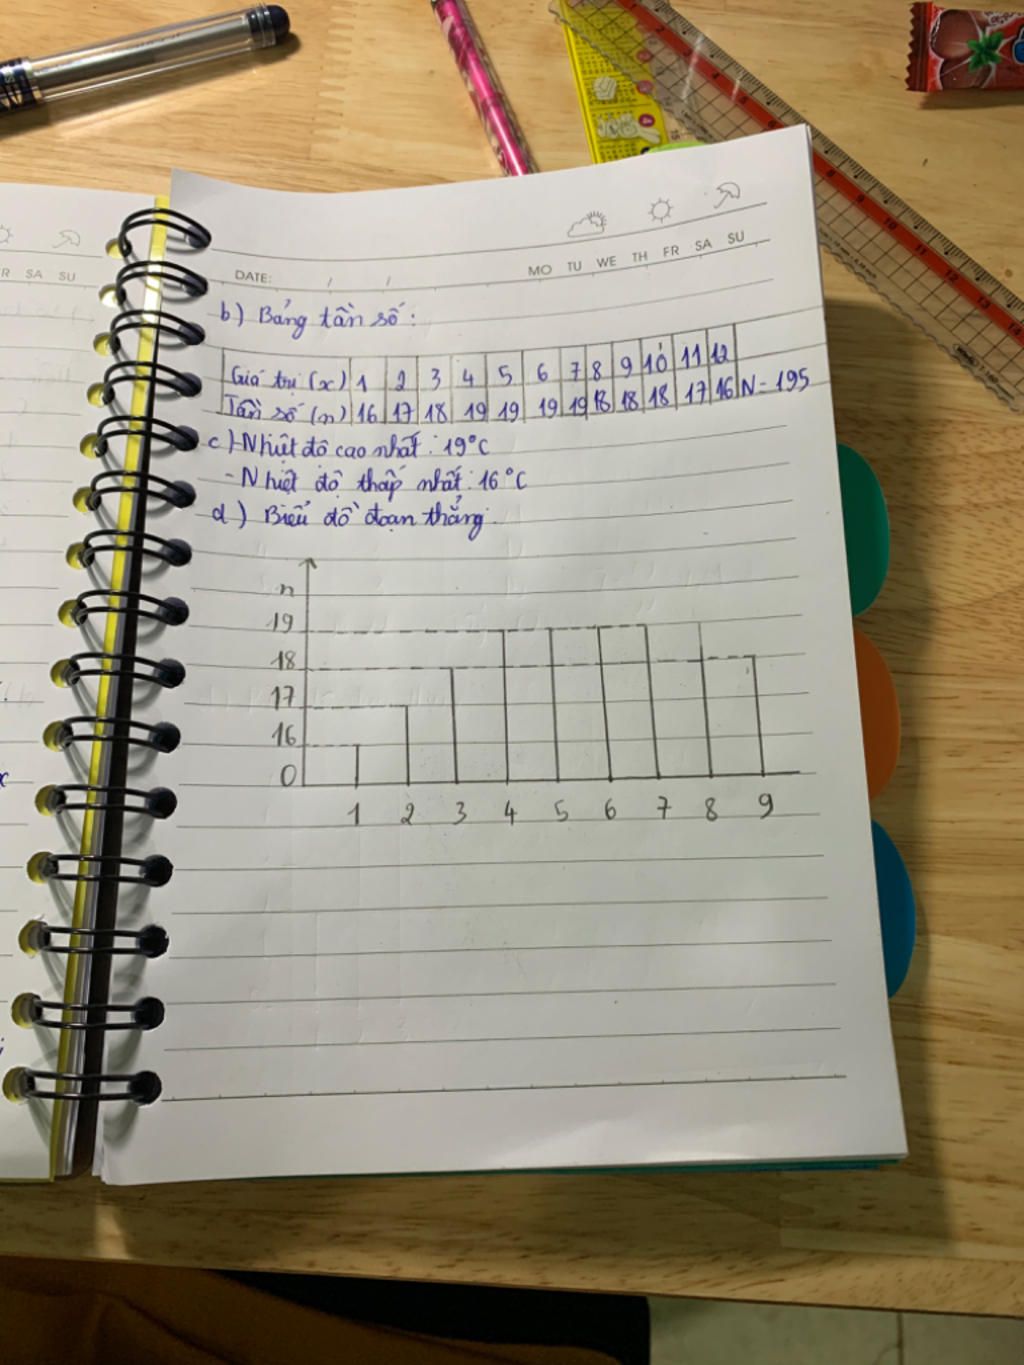 DATE: / /
MO TU WE TH FR SA SU
R SA SU
b) Bảng tần số:
Giá trị (x) 1 2 3 4 5 6 7 8 9 10 11 12
Tần số (n) 16 17 18 19 19 19 19 18 18 18 17 16 N = 195
c) - Nhiệt độ cao nhất: 19°C
- Nhiệt độ thấp nhất: 16°C
d) Biểu đồ đoạn thẳng.
n
19
18
17
16
0
1 2 3 4 5 6 7 8 9